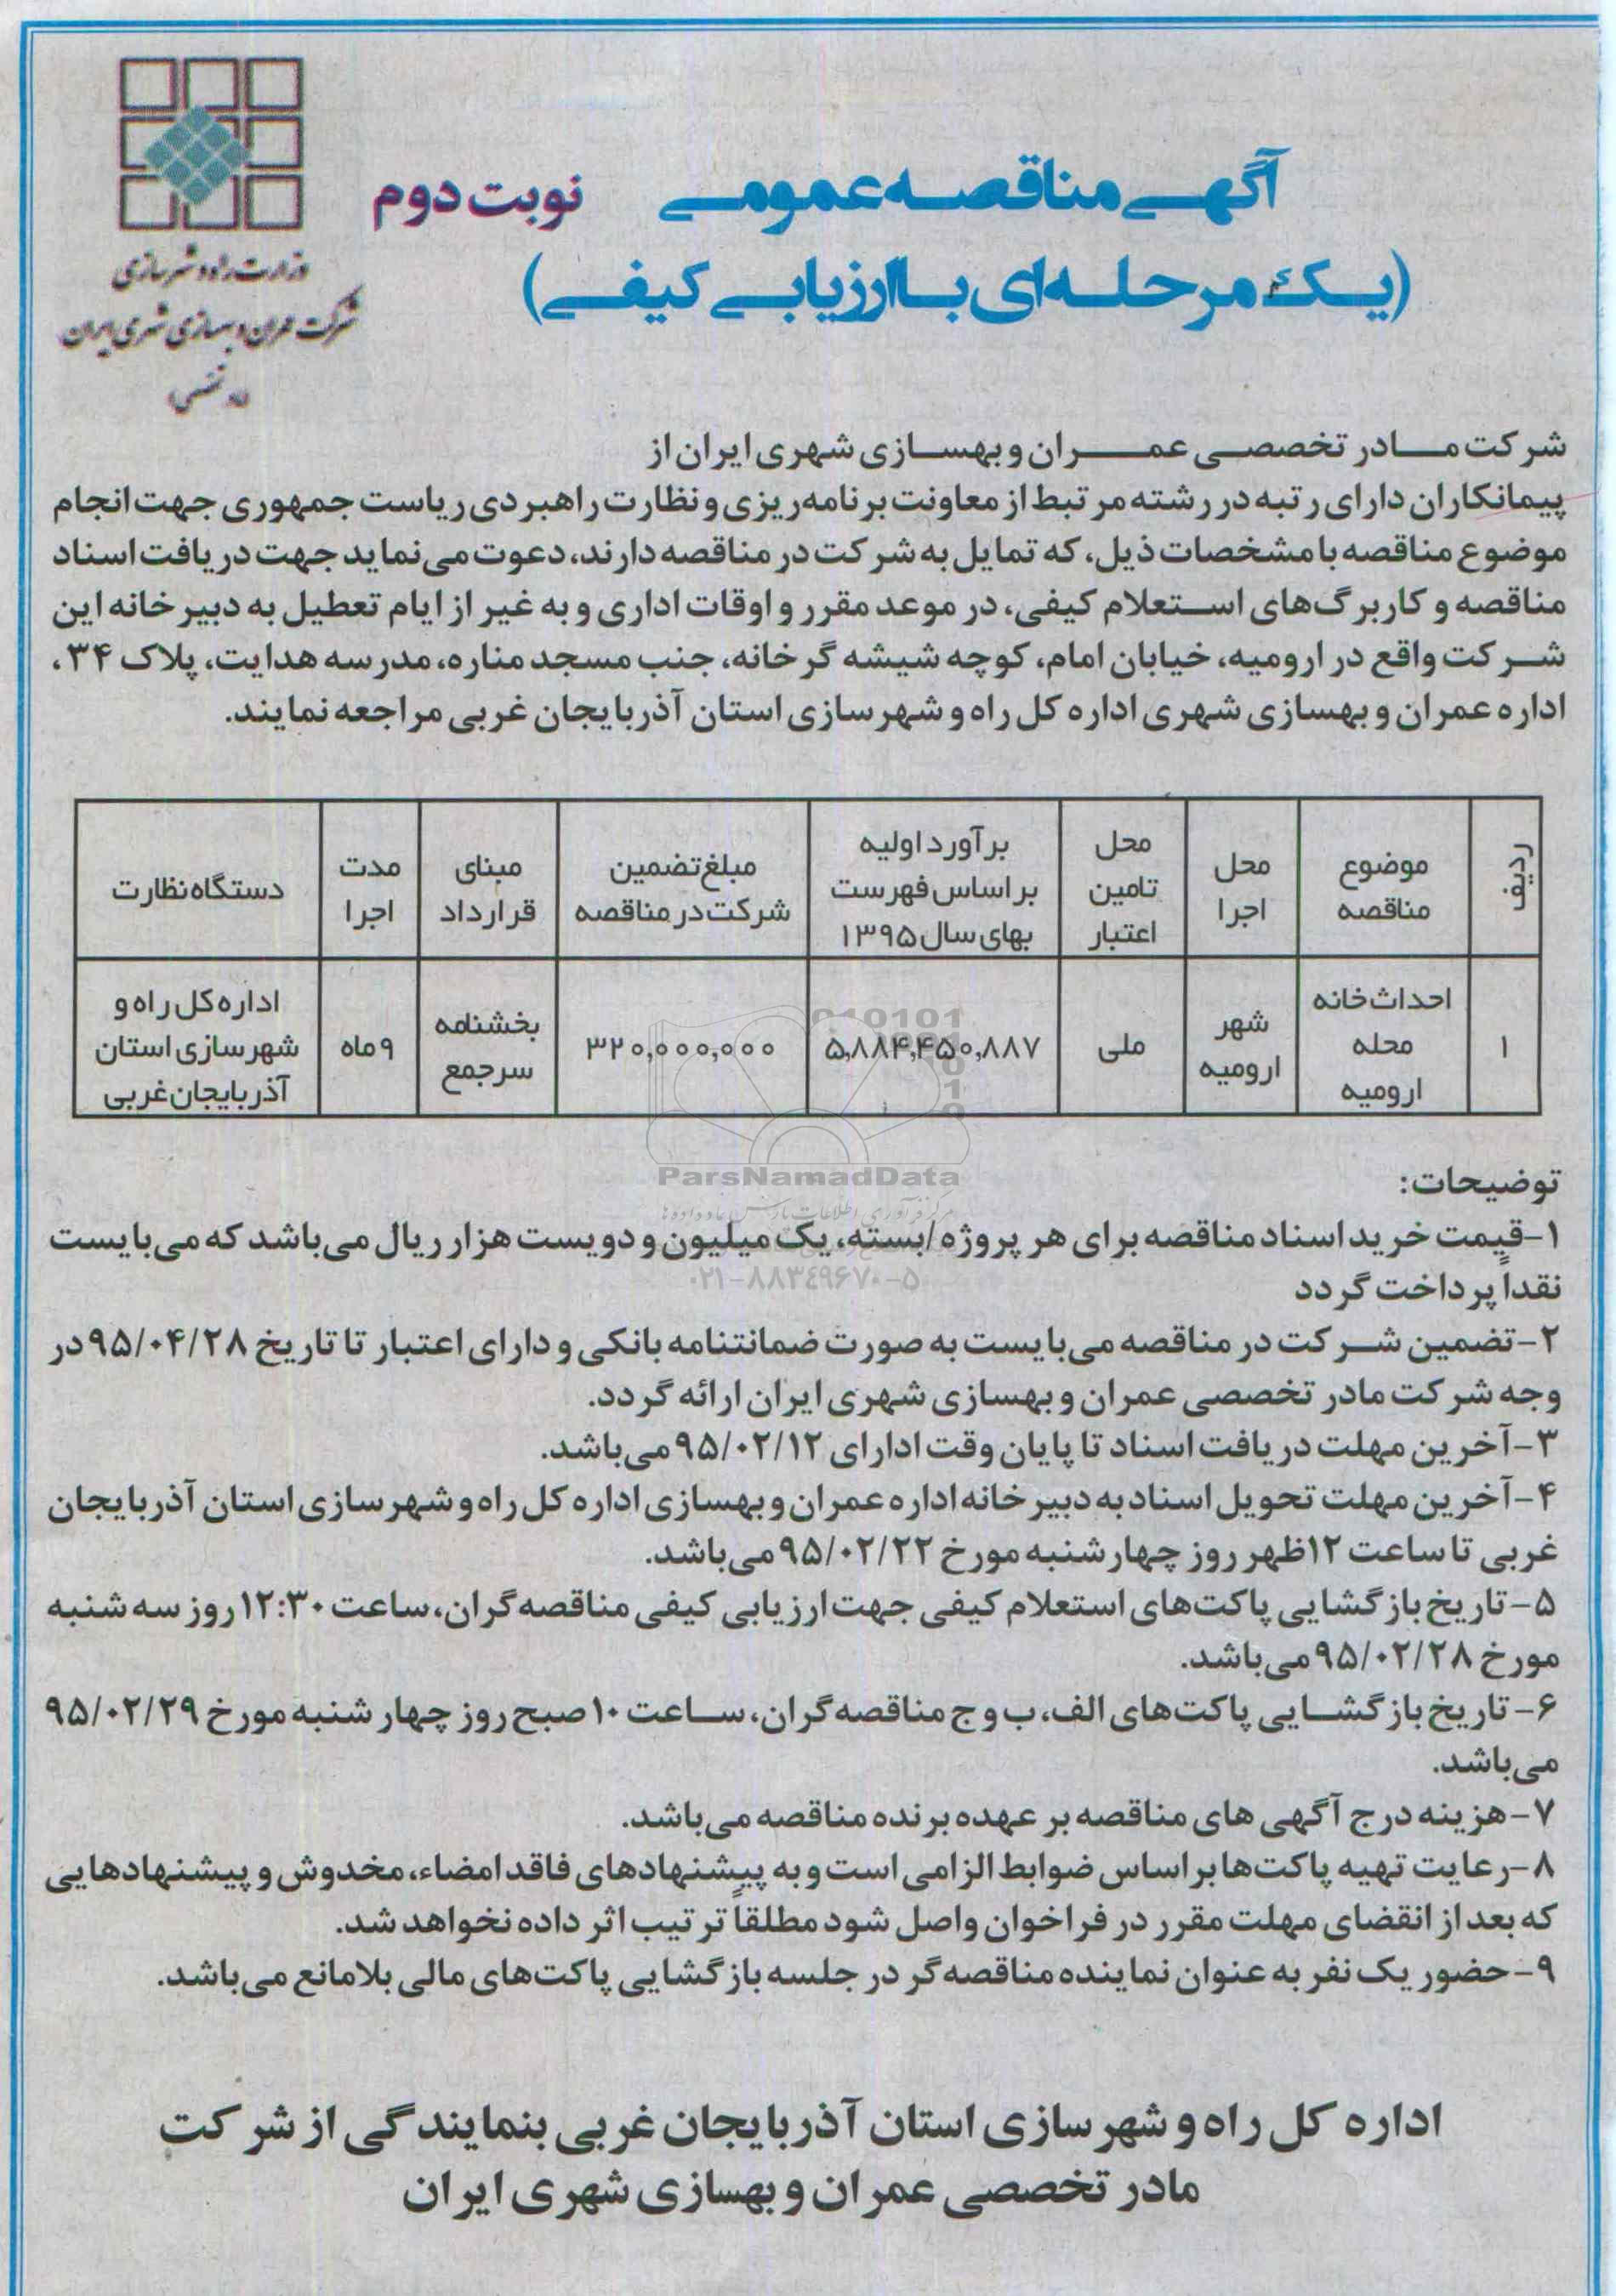 آگهی مناقصه عمومی نوبت دوم
(یک مرحله‌ای با ارزیابی کیفی)
وزارت راه و شهرسازی
شرکت عمران و بهسازی شهری ایران
(مادر تخصصی)
شرکت مادر تخصصی عمران و بهسازی شهری ایران از
پیمانکاران دارای رتبه در رشته مرتبط از معاونت برنامه‌ریزی و نظارت راهبردی ریاست جمهوری جهت انجام
موضوع مناقصه با مشخصات ذیل، که تمایل به شرکت در مناقصه دارند، دعوت می‌نماید جهت دریافت اسناد
مناقصه و کاربرگ‌های استعلام کیفی، در موعد مقرر و اوقات اداری و به غیر از ایام تعطیل به دبیرخانه این
شرکت واقع در ارومیه، خیابان امام، کوچه شیشه گرخانه، جنب مسجد مناره، مدرسه هدایت، پلاک ۳۴،
اداره عمران و بهسازی شهری اداره کل راه و شهرسازی استان آذربایجان غربی مراجعه نمایند.
ردیف
موضوع
مناقصه
محل
اجرا
محل
تامین
اعتبار
برآورد اولیه
بر اساس فهرست
بهای سال ۱۳۹۵
مبلغ تضمین
شرکت در مناقصه
مبنای
قرارداد
مدت
اجرا
دستگاه نظارت
۱
احداث خانه
محله
ارومیه
شهر
ارومیه
ملی
۵,۸۸۴,۴۵۰,۸۸۷
۳۲۰,۰۰۰,۰۰۰
بخشنامه
سرجمع
۹ ماه
اداره کل راه و
شهرسازی استان
آذربایجان غربی
ParsNamadData
مرکز فرآوری اطلاعات پارس نماد داده‌ها
۰۲۱-۸۸۳۴۹۶۷۰-۵
توضیحات:
۱- قیمت خرید اسناد مناقصه برای هر پروژه /بسته، یک میلیون و دویست هزار ریال می‌باشد که می‌بایست
نقداً پرداخت گردد
۲- تضمین شرکت در مناقصه می‌بایست به صورت ضمانتنامه بانکی و دارای اعتبار تا تاریخ ۹۵/۰۴/۲۸ در
وجه شرکت مادر تخصصی عمران و بهسازی شهری ایران ارائه گردد.
۳- آخرین مهلت دریافت اسناد تا پایان وقت ادارای ۹۵/۰۲/۱۲ می‌باشد.
۴- آخرین مهلت تحویل اسناد به دبیرخانه اداره عمران و بهسازی اداره کل راه و شهرسازی استان آذربایجان
غربی تا ساعت ۱۲ ظهر روز چهارشنبه مورخ ۹۵/۰۲/۲۲ می‌باشد.
۵- تاریخ بازگشایی پاکت‌های استعلام کیفی جهت ارزیابی کیفی مناقصه‌گران، ساعت ۱۲:۳۰ روز سه شنبه
مورخ ۹۵/۰۲/۲۸ می‌باشد.
۶- تاریخ بازگشایی پاکت‌های الف، ب و ج مناقصه‌گران، ساعت ۱۰ صبح روز چهارشنبه مورخ ۹۵/۰۲/۲۹
می‌باشد.
۷- هزینه درج آگهی های مناقصه بر عهده برنده مناقصه می‌باشد.
۸- رعایت تهیه پاکت‌ها بر اساس ضوابط الزامی است و به پیشنهادهای فاقد امضاء، مخدوش و پیشنهادهایی
که بعد از انقضای مهلت مقرر در فراخوان واصل شود مطلقاً ترتیب اثر داده نخواهد شد.
۹- حضور یک نفر به عنوان نماینده مناقصه‌گر در جلسه بازگشایی پاکت‌های مالی بلامانع می‌باشد.
اداره کل راه و شهرسازی استان آذربایجان غربی بنمایندگی از شرکت
مادر تخصصی عمران و بهسازی شهری ایران